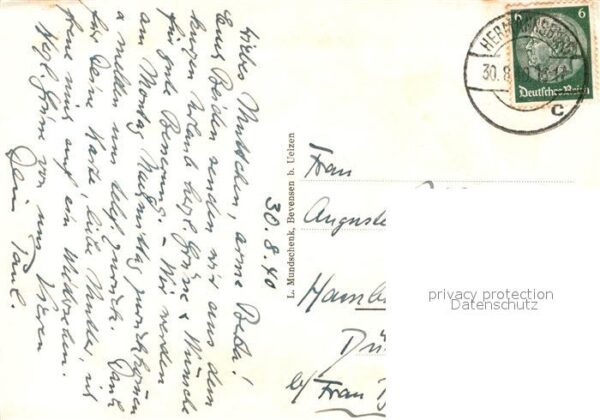 30.8.40
Liebes Muttchen, arme Berta!
Euch Beiden senden wir aus dem
kurzen Urlaub herzl. Grüße & Wünsche
für gute Besserung. - Wir werden
am Montag Nachmittag zurückkommen
u melden uns zurück. Dank
für Deine Karte, liebe Mutter, ich
freue mich auf ein Wiedersehen.
Herzl. Grüße von uns Vieren
Dein Paul.
L. Mundschenk, Bevensen b. Uelzen
6 6
Deutsches Reich
30.8.
c
Frau
Auguste
Hamb
Dü
b/ Frau
privacy protection
Datenschutz